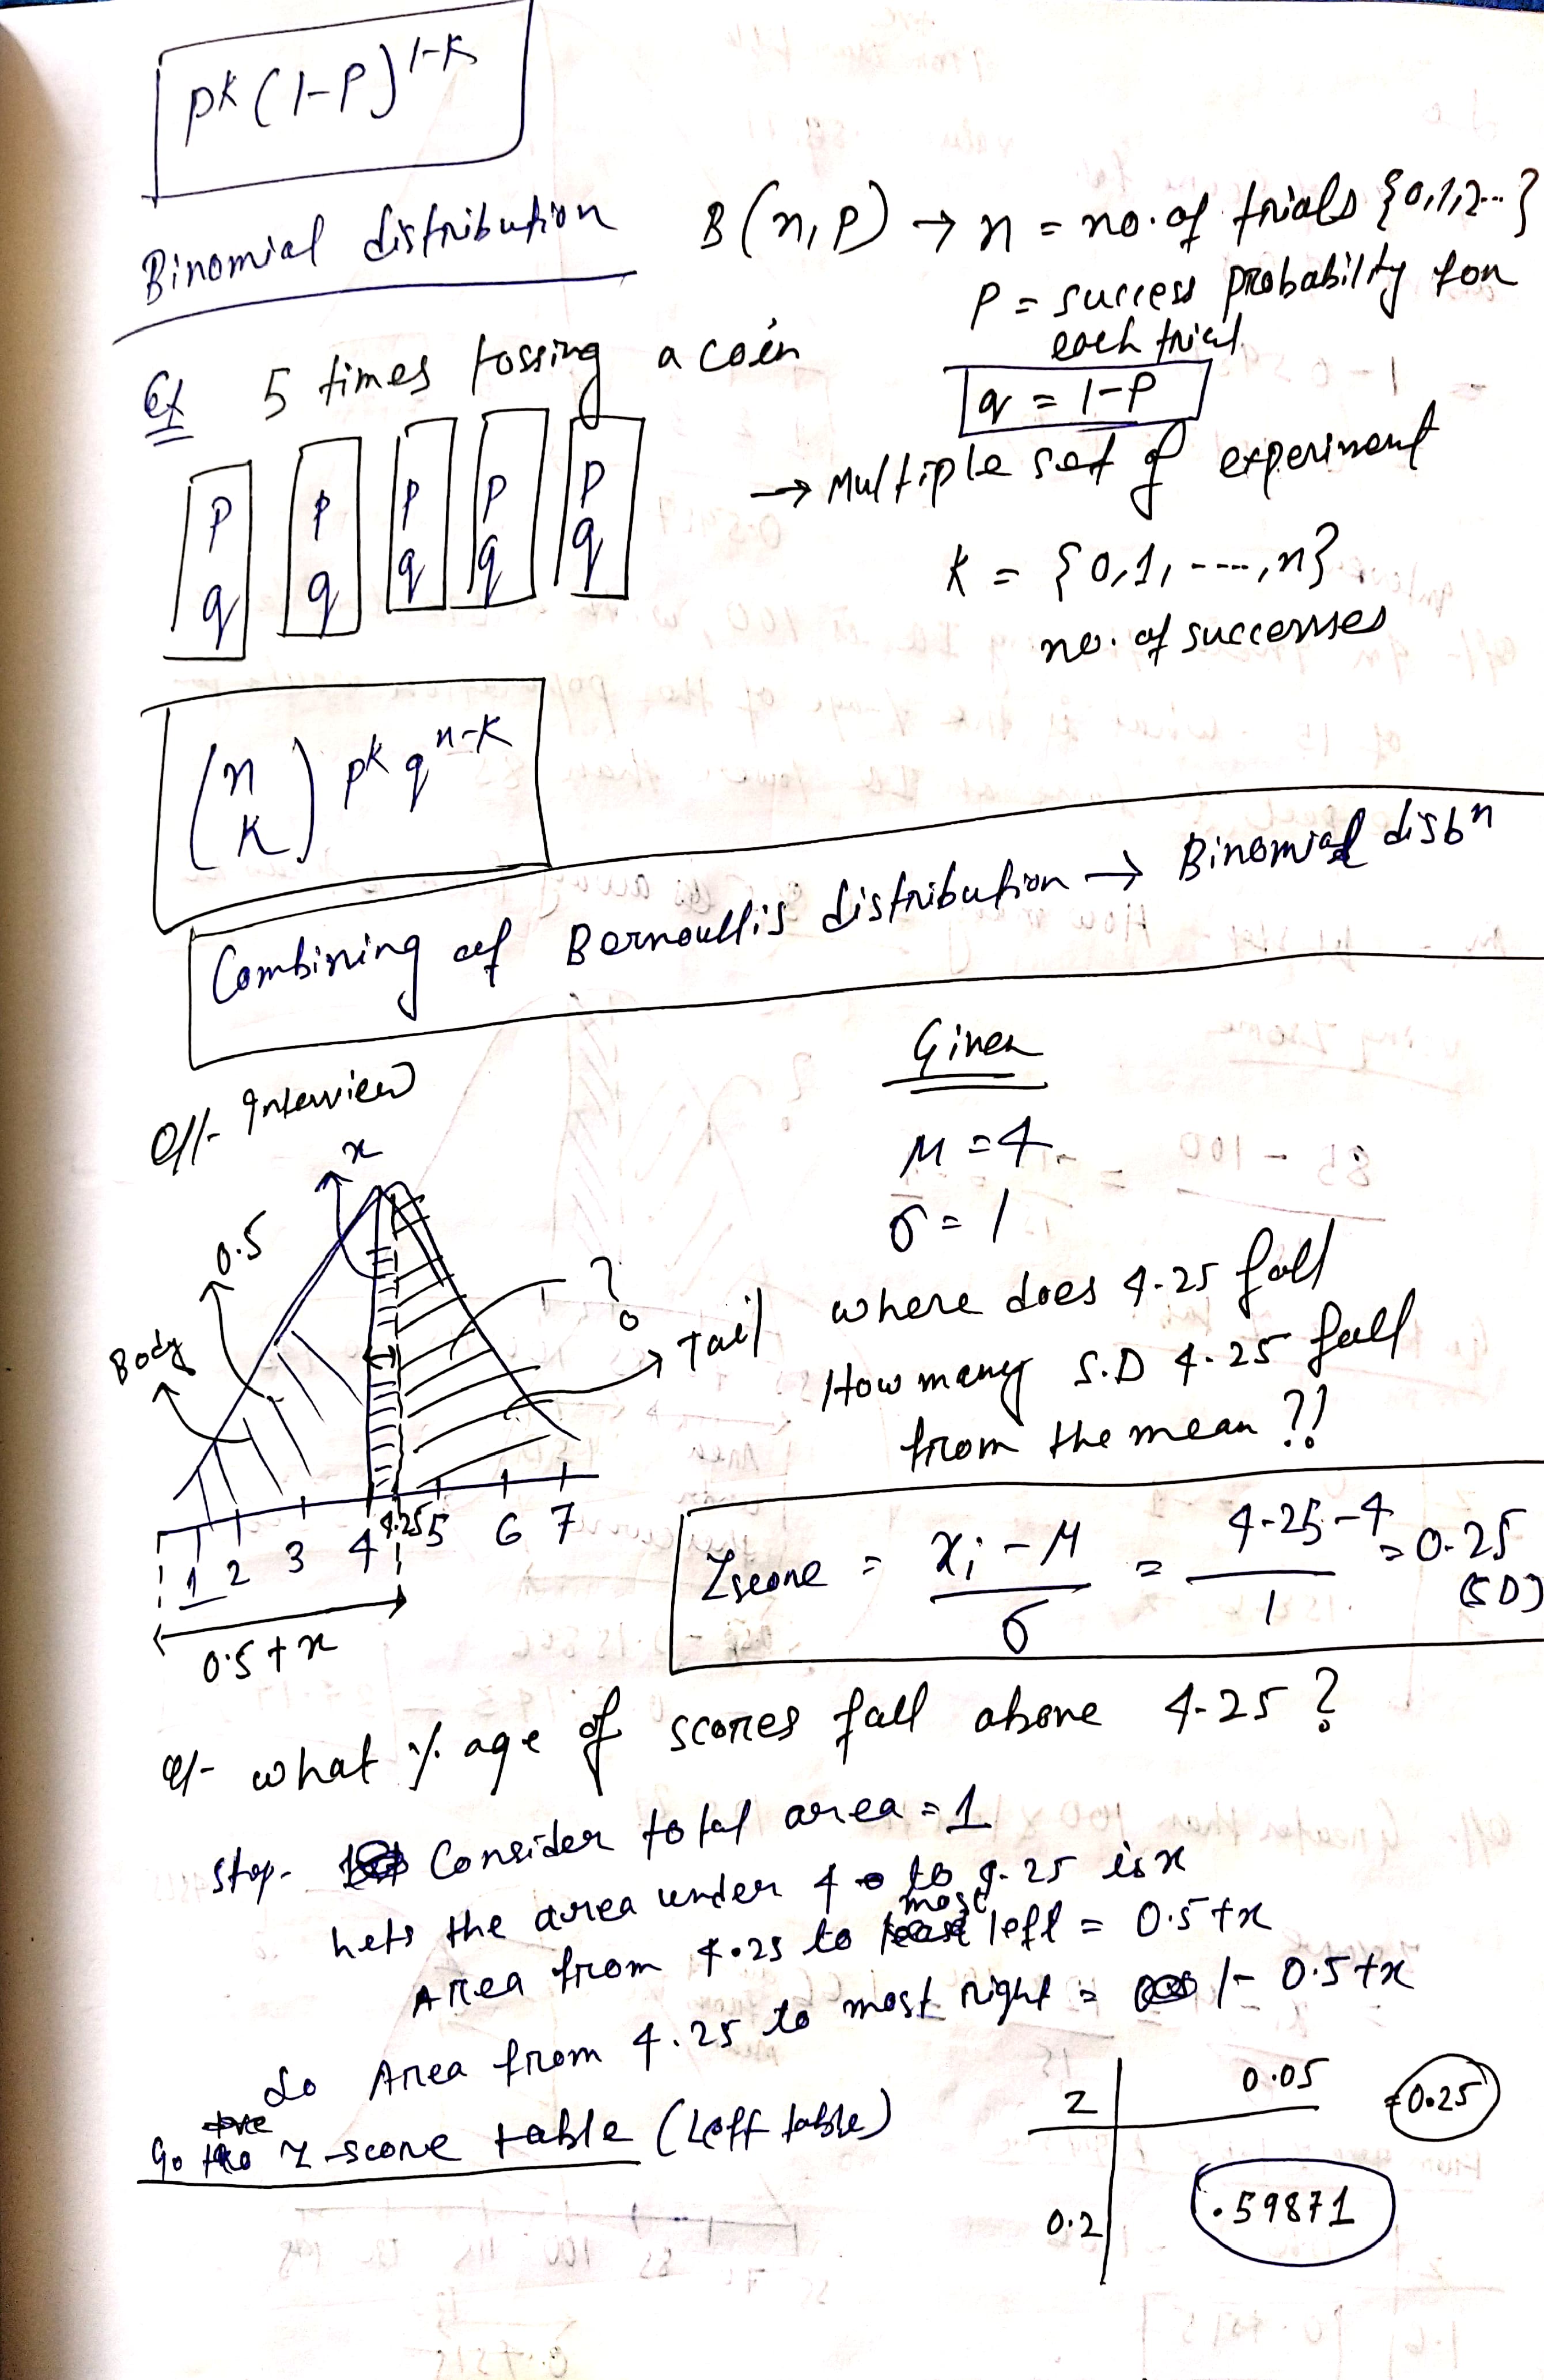 pᵏ(1-P)¹⁻ᴷ
Binomial distribution B(n,P) → n = no. of trials {0,1,2...}
P = success probability for
each trial
q = 1-P
Ex 5 times tossing a coin
P P P P P
q q q q q
→ Multiple set of experiment
K = {0,1, ----, n}
no. of successes
(n K) pᵏ qⁿ⁻ᴷ
Combining of Bernoullis distribution → Binomial disbⁿ
Q/- Interview
Given
μ = 4
σ = 1
x
0.5
Body
?
Tail
where does 4.25 fall
How many S.D 4.25 fall
from the mean ??
1 2 3 4 4.25 5 6 7
0.5 + x
Zscore = xᵢ - μ / σ = 4.25-4 / 1 = 0.25 (SD)
Q/- what % age of scores fall above 4.25 ?
step- Consider total area = 1
Lets the area under 4 to 4.25 is x
Area from 4.25 to most left = 0.5 + x
So Area from 4.25 to most right = 1- 0.5 + x
Go Z-score table (Left table)
Z 0.05 = 0.25
0.2 .59871